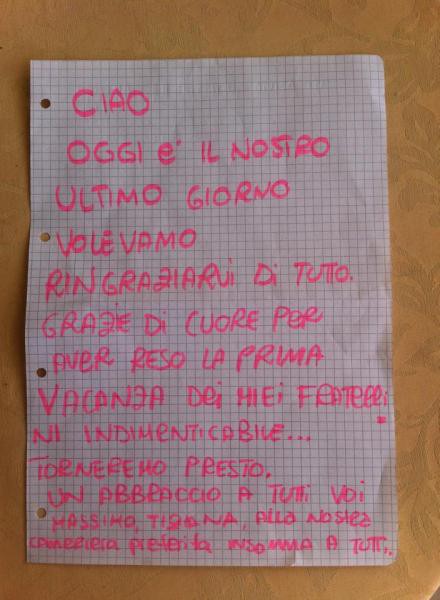 CIAO
OGGI E' IL NOSTRO
ULTIMO GIORNO
VOLEVAMO
RINGRAZIARVI DI TUTTO.
GRAZIE DI CUORE PER
AVER RESO LA PRIMA
VACANZA DEI MIEI FRATELLI
NI INDIMENTICABILE...
TORNEREMO PRESTO.
UN ABBRACCIO A TUTTI VOI
MASSIMO, TIZIANA, ALLA NOSTRA
CAMERIERA PREFERITA INSOMMA A TUTTI.